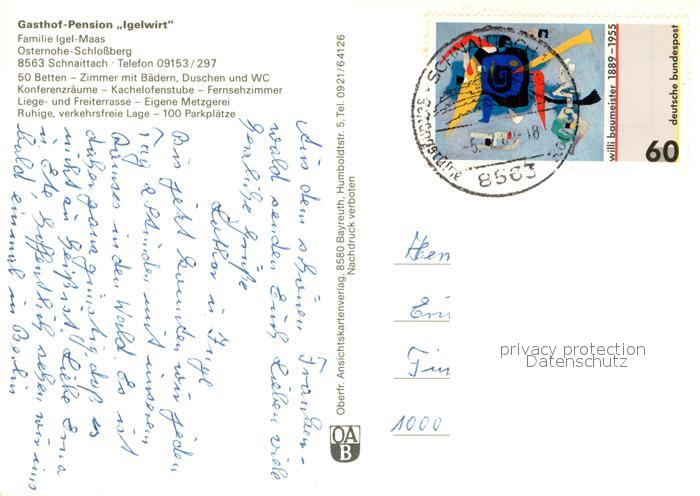 Gasthof-Pension „Igelwirt"
Familie Igel-Maas
Osternohe-Schloßberg
8563 Schnaittach · Telefon 09153/297
50 Betten – Zimmer mit Bädern, Duschen und WC
Konferenzräume – Kachelofenstube – Fernsehzimmer
Liege- und Freiterrasse – Eigene Metzgerei
Ruhige, verkehrsfreie Lage – 100 Parkplätze
Aus dem schönen Franken-
wald senden Euch Lieben viele
herzliche Grüße
Lothar u. Inge
Bis jetzt konnten wir jeden
Tag 2 Stunden mit unserem
in den Wald. Es ist
daher ganz günstig, daß es
nicht zu heiß ist. Liebe Erna
u. Ete, hoffentlich sehen wir uns
bald einmal in Berlin
Oberfr. Ansichtskartenverlag, 8580 Bayreuth, Humboldtstr. 5, Tel. 0921/64126
Nachdruck verboten
OA
B
SCHNAITTACH
8563
willi baumeister 1889–1955
deutsche bundespost
60
1000
privacy protection
Datenschutz